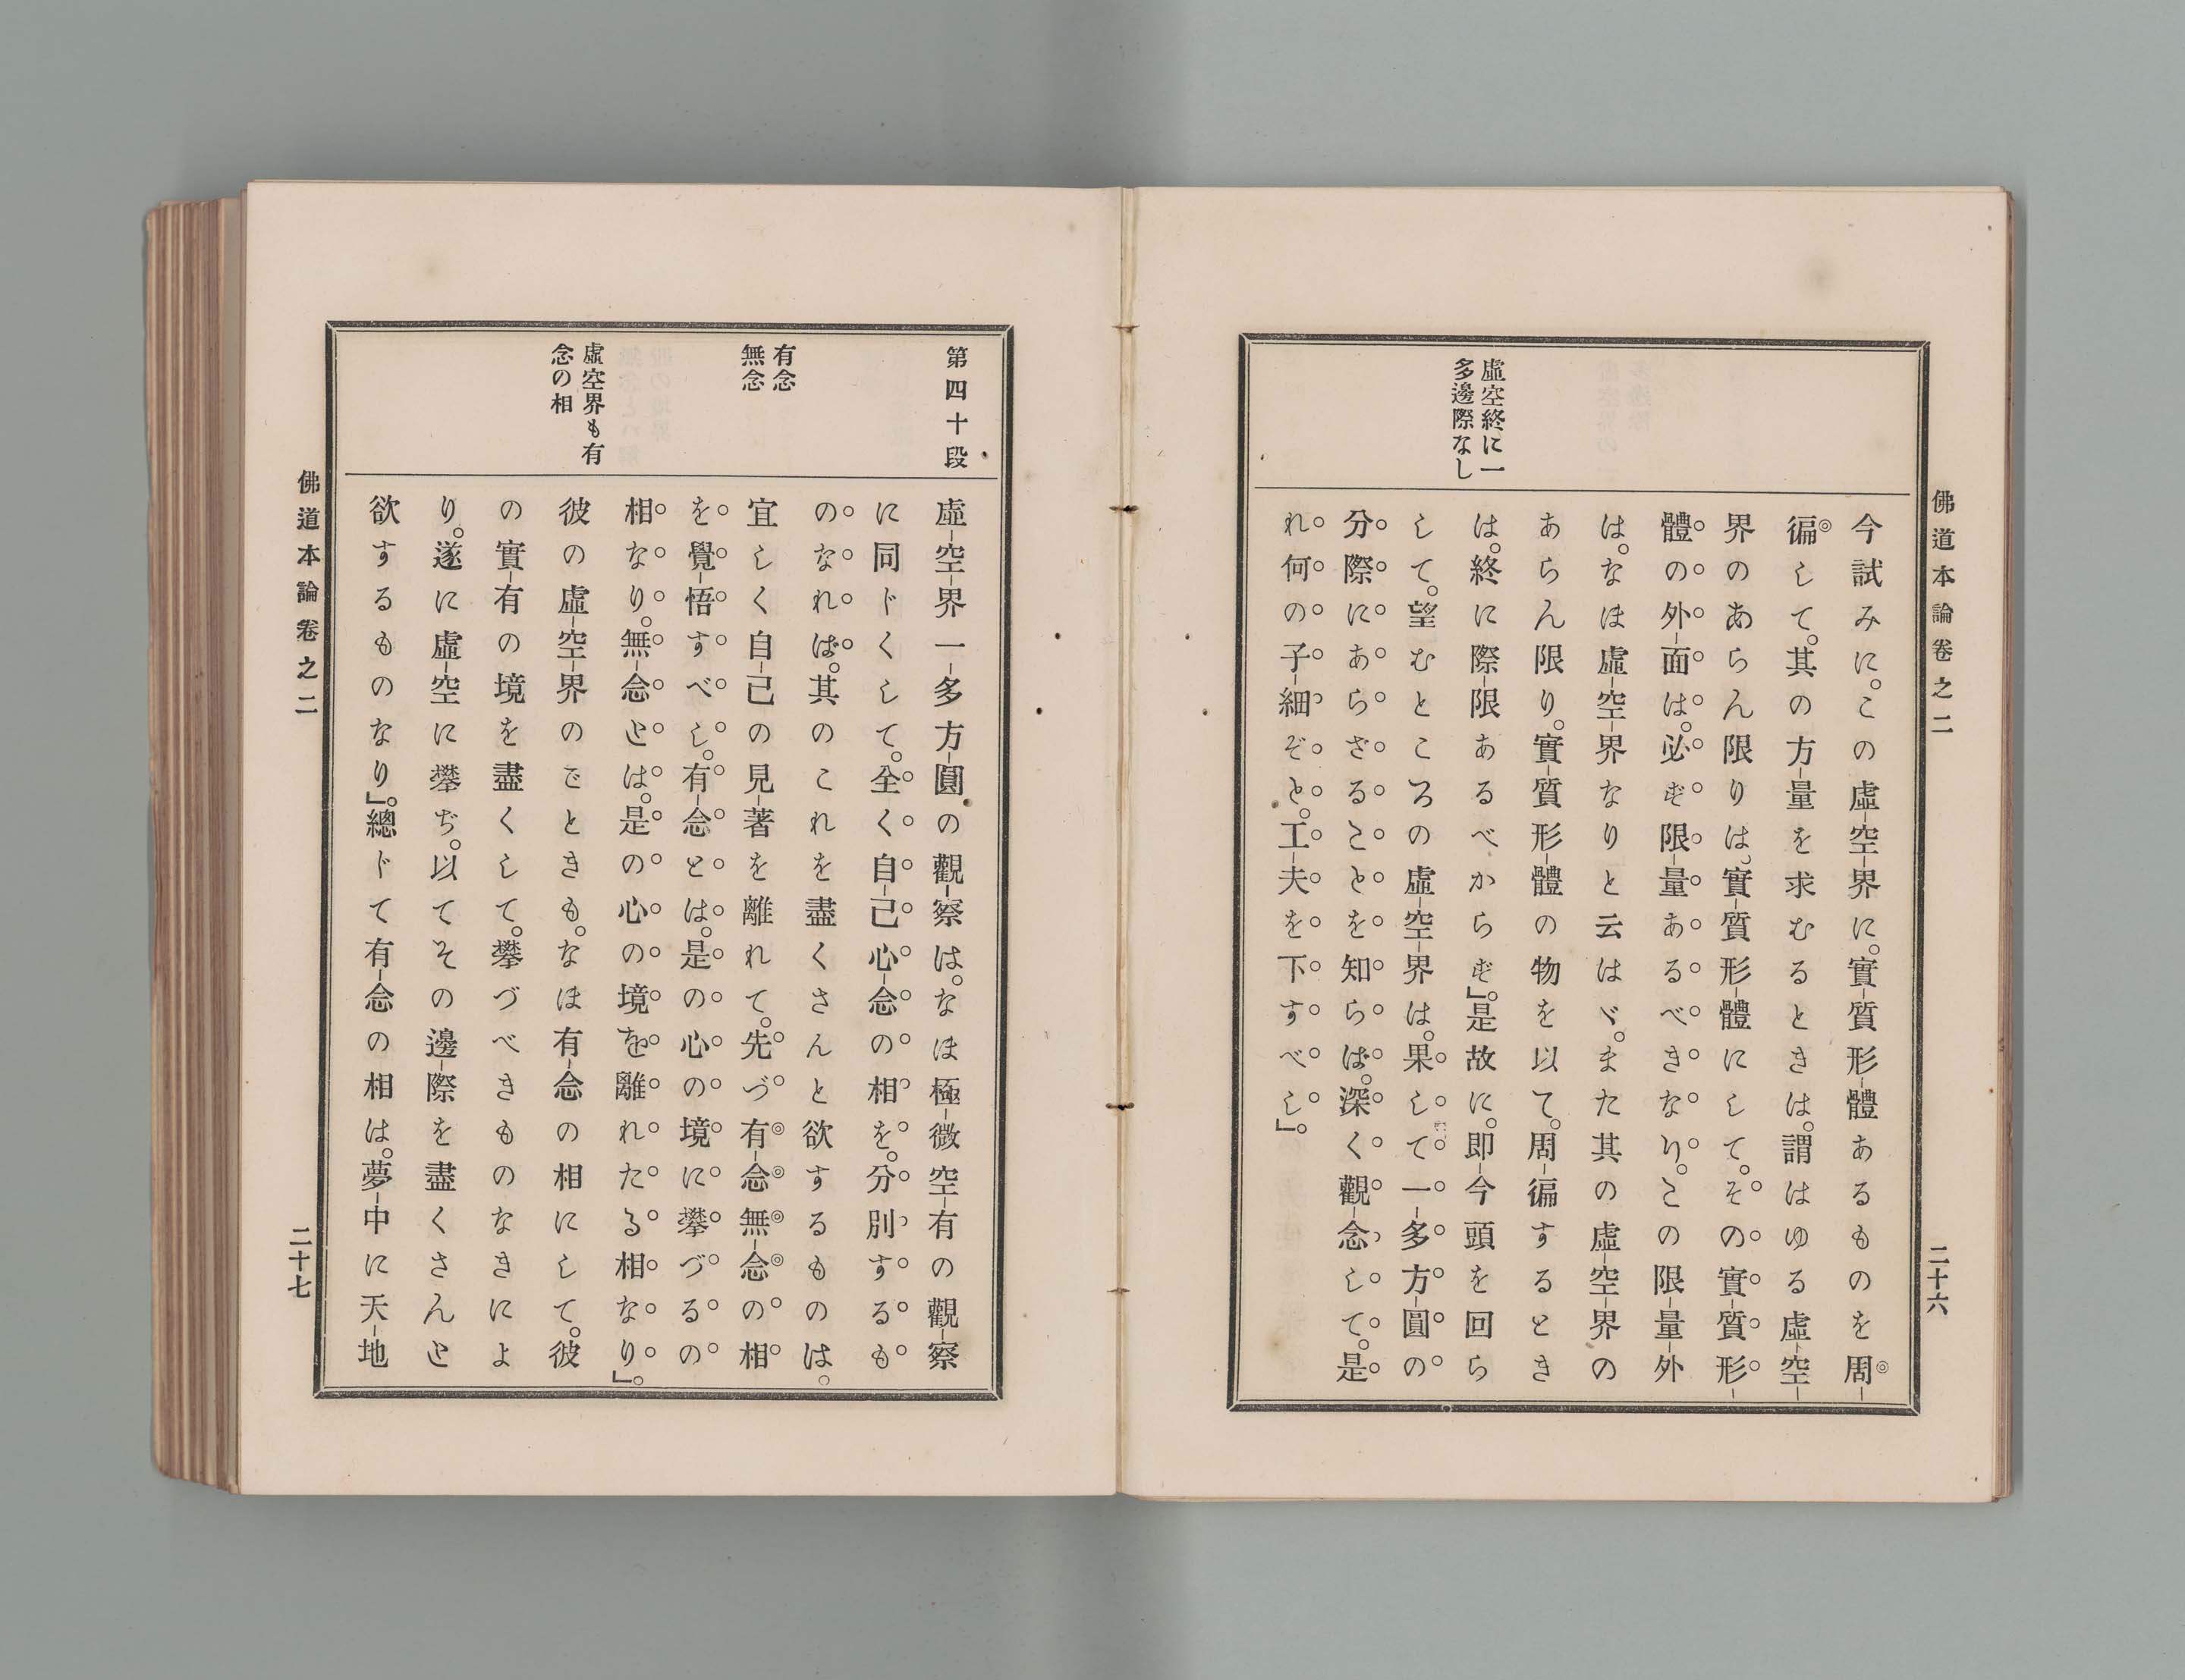 佛道本論卷之二
二十六
虛空終に一
多邊際なし
今試みに。この虛空界に。實質形體あるものを周
徧して。其の方量を求むるときは。謂はゆる虛空
界のあらん限りは。實質形體にして。その實質形
體の外面は。必ず限量あるべきなり。この限量外
は。なほ虛空界なりと云はゞ。また其の虛空界の
あらん限り。實質形體の物を以て。周徧するとき
は。終に際限あるべからず』。是故に。即今頭を回ら
して。望むところの虛空界は。果して一多方圓の
分際にあらざることを知らば。深く觀念して。是
れ何の子細ぞと。工夫を下すべし』。
第四十段
有念
無念
虛空界も有
念の相
虛空界一多方圓の觀察は。なほ極微空有の觀察
に同じくして。全く自己心念の相を。分別するも
のなれば。其のこれを盡くさんと欲するものは。
宜しく自己の見著を離れて。先づ有念無念の相
を覺悟すべし。有念とは。是の心の境に攀づるの
相なり。無念とは。是の心の境を離れたる相なり』。
彼の虛空界のごときも。なほ有念の相にして。彼
の實有の境を盡くして。攀づべきものなきによ
り。遂に虛空に攀ぢ。以てその邊際を盡くさんと
欲するものなり』。總じて有念の相は。夢中に天地
佛道本論卷之二
二十七